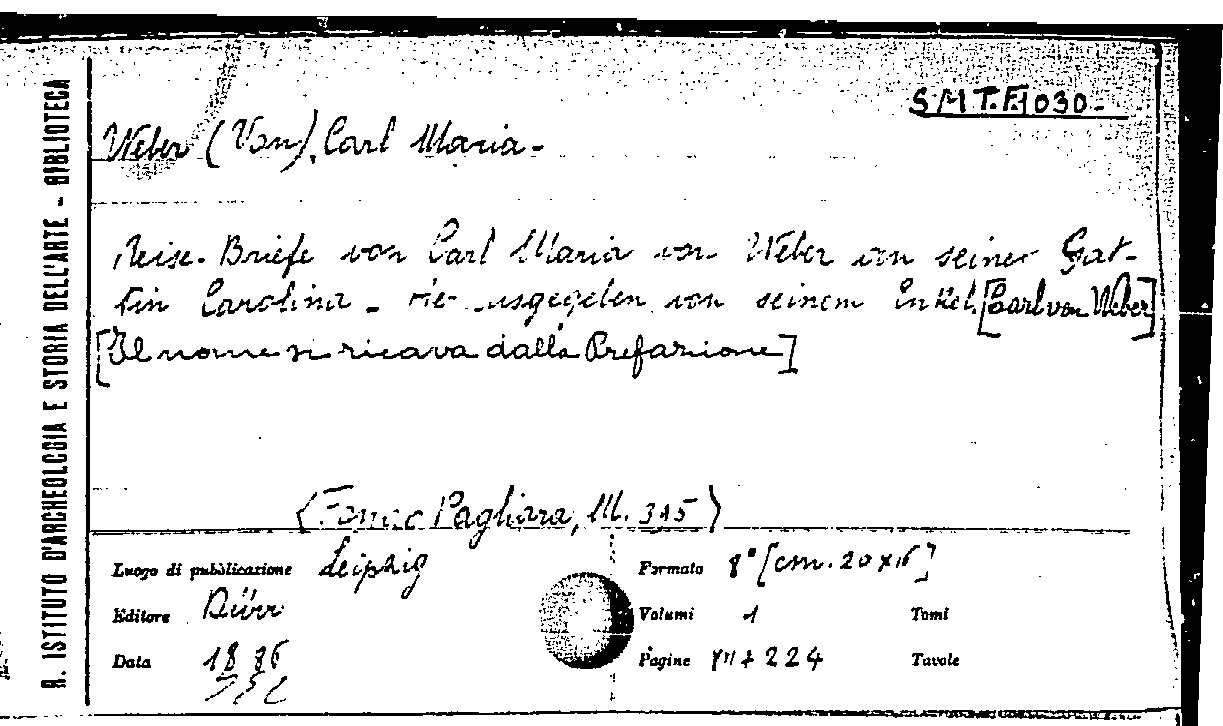 R. ISTITUTO D'ARCHEOLOGIA E STORIA DELL'ARTE - BIBLIOTECA
S.M.T.F. 1030-
Weber (Von), Carl Maria -
Reise-Briefe von Carl Maria von Weber an seiner Gat-
tin Carolina - von seinem Enkel. [Carl von Weber]
[Il nome si ricava dalla Prefazione]
(Fondo Pagliara, M. 345)
Luogo di pubblicazione Leipzig
Editore Dürr
Data 1886
Formato 8° [cm. 20 x 16]
Volumi 1 Tomi
Pagine + 224 Tavole